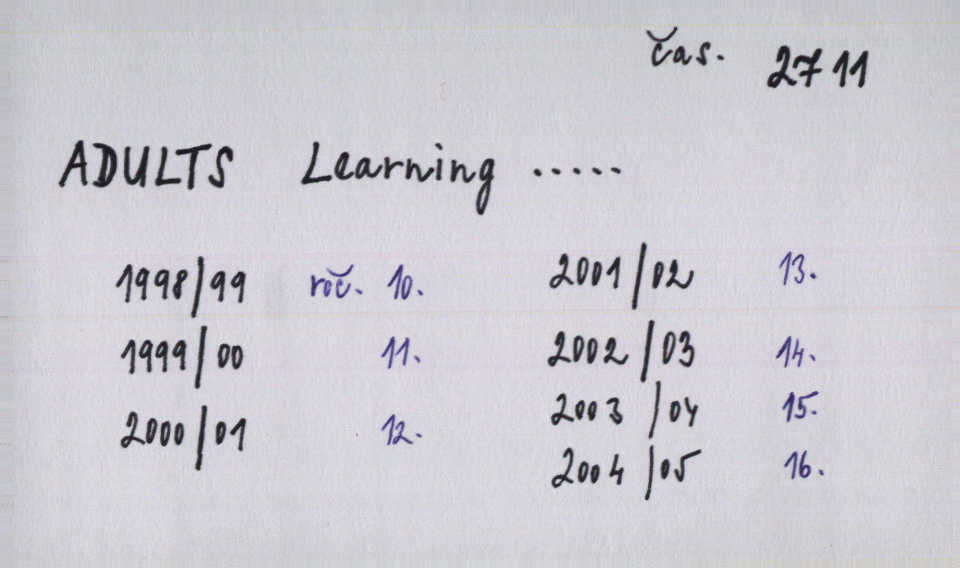 čas. 2711
ADULTS Learning .....
1998/99 roč. 10.
1999/00 11.
2000/01 12.
2001/02 13.
2002/03 14.
2003/04 15.
2004/05 16.